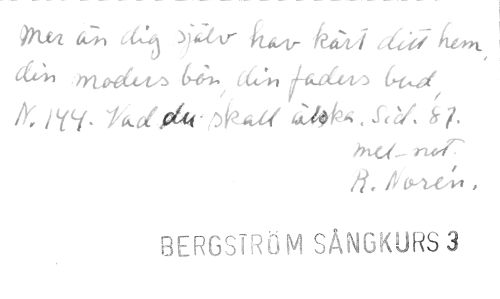 Mer än dig själv hav kärt ditt hem,
din moders bön, din faders bud,
N. 144. Vad du skall älska. Sid. 87.
mel-not.
R. Norén.
BERGSTRÖM SÅNGKURS 3